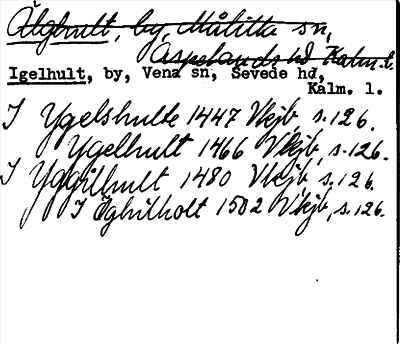 Älghult, by, Målilla sn,
Aspelands hd Kalm. l.
Igelhult, by, Vena sn, Sevede hd,
Kalm. l.
J Ygelshulte 1447 Vkjb, s.126.
Ygelhult 1466 Vkjb, s.126.
J Yggilhult 1480 Vkjb, s.126.
J Öghilholt 1502 Vkjb, s.126.